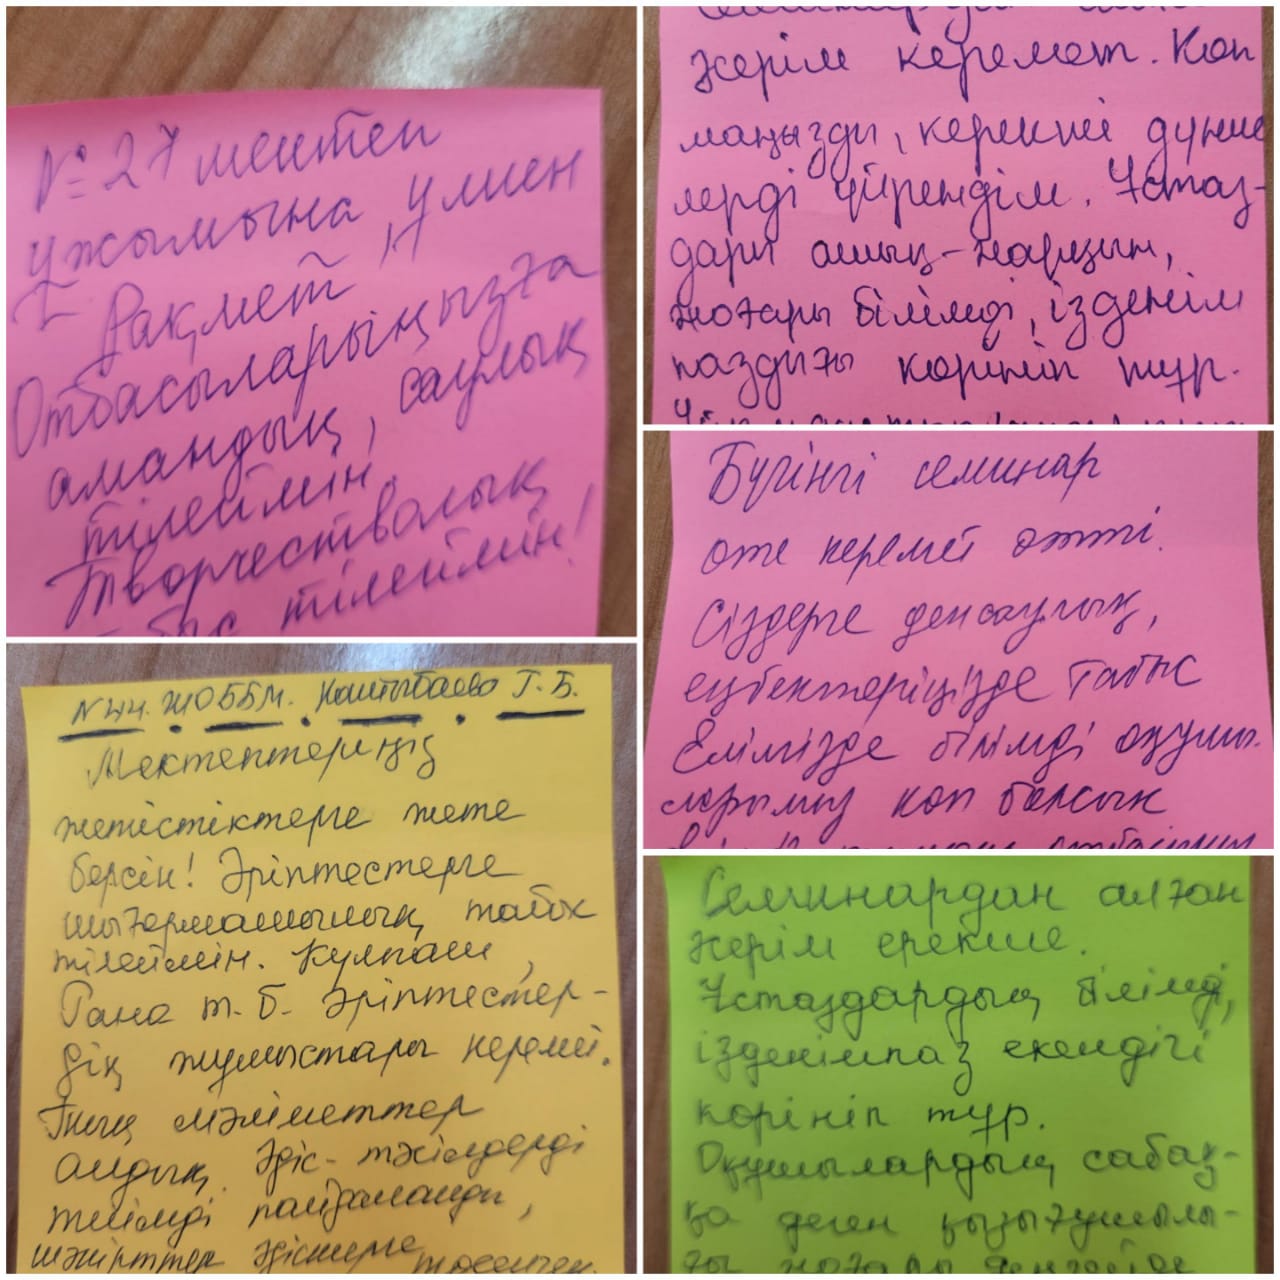 № 27 мектеп
ұжымына үлкен
Рақмет!!
Отбасыларыңызға
амандық, саулық
тілеймін.
Творчестволық
тілеймін!
жерім керемет. Көп
маңызды, керекті дүние
лерді үйрендім. Ұстаз-
дары ашық-жарқын,
жоғары білімді, ізденім
паздығы көрініп тұр.
Бүгінгі семинар
өте керемет өтті.
Сіздерге денсаулық,
еңбектеріңізде табыс
Елімізде білімді оқушы
ларымыз көп болсын
N44. ЖОББМ. Г. Б.
Мектептеріңіз
жетістіктерге жете
берсін! Әріптестерге
шығармашылық табыс
тілеймін. Күлпаш,
Рана т. б. әріптестер-
дің жұмыстары керемет.
Тың мәліметтер
алдық. Әдіс-тәсілдерді
тиімді пайдаланды,
шәкірттер
Семинардан алған
жерім ерекше.
Ұстаздардың білімді,
ізденімпаз екендігі
көрініп тұр.
Оқушылардың сабақ-
қа деген қызығушылы-
ғы жоғары деңгейде